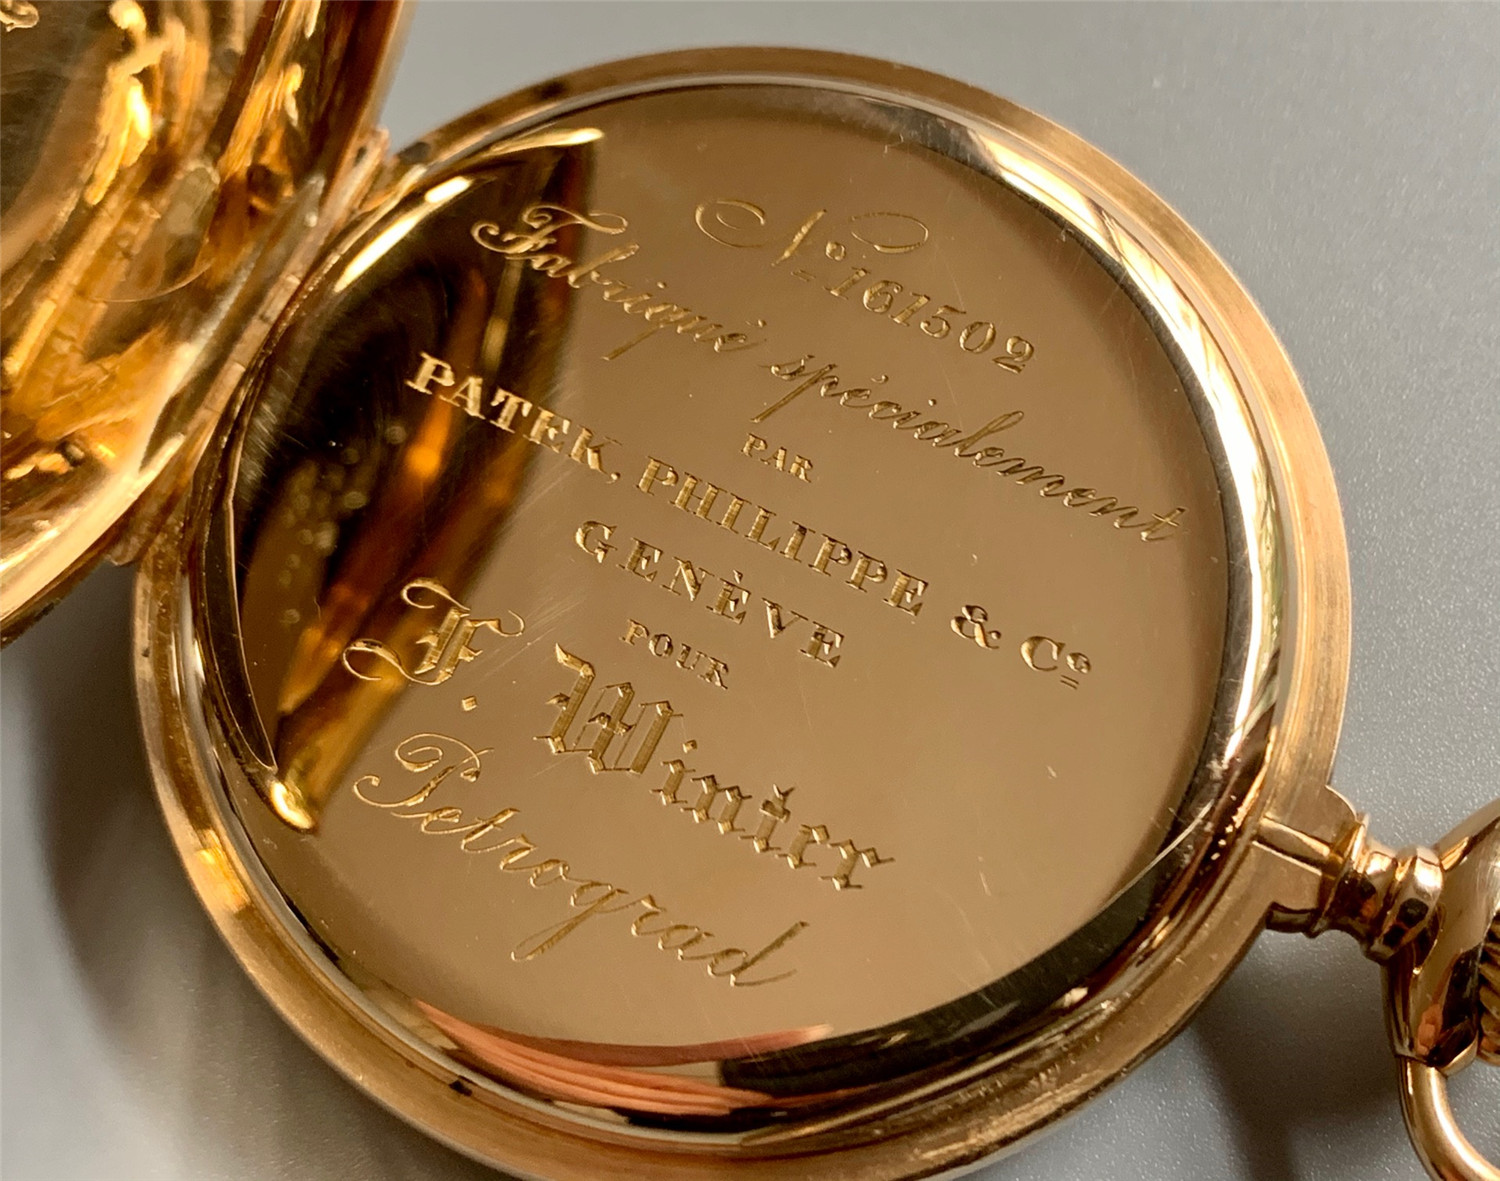 No 161502
Fabriqué spécialement
PAR
PATEK, PHILIPPE & Co
GENÈVE
POUR
F. Winter
Petrograd